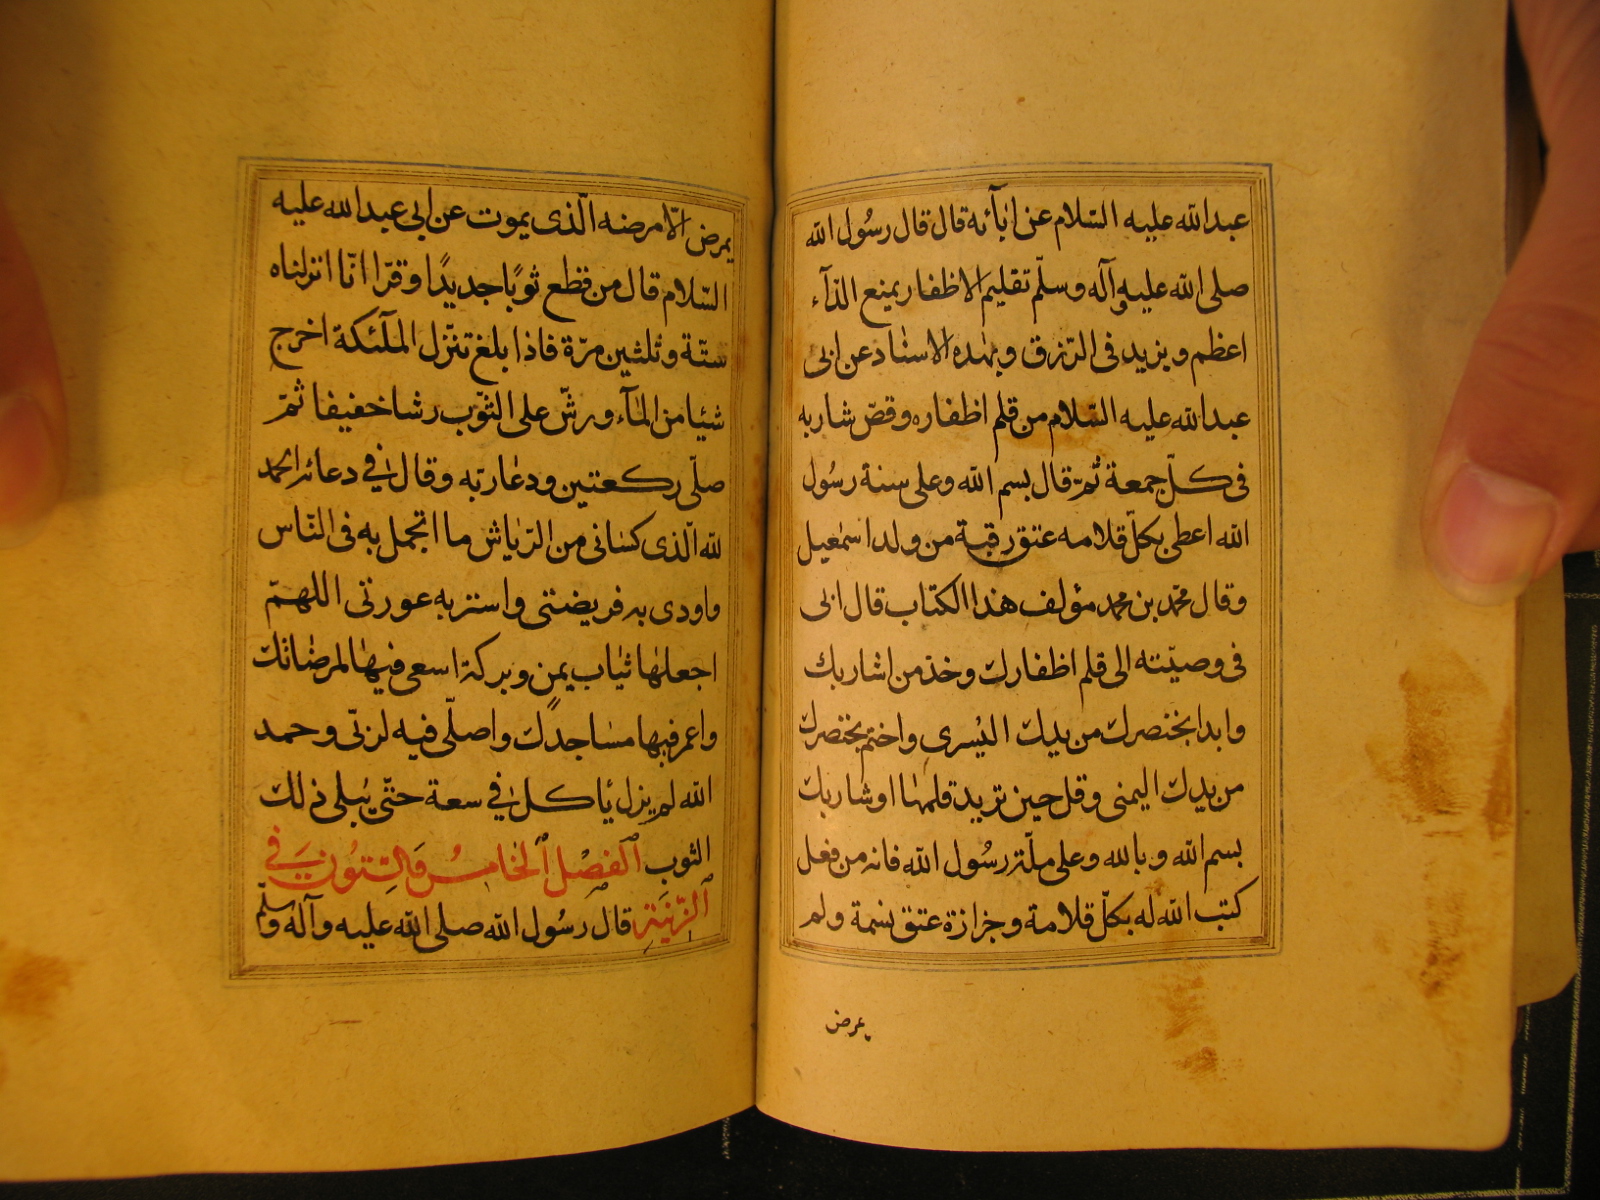 عبدالله عليه السّلام عن اٰبآئه قال قال رسُول الله
صلى الله عليه وآله وسلّم تقليم الاظفار يمنع الدآء
اعظم ويزيد فى الرّزق وبهٰذه الاسناد عن ابى
عبدالله عليه السّلام من قلم اظفاره وقصّ شاربه
فى كلّ جمعة ثمّ قال بسم الله وعلى سنة رسُول
الله اعطى بكلّ قلامه عتق رقبة من ولد اسمٰعيل
وقال محمّد بن محمد مؤلف هٰذا الكتاب قال ابى
فى وصيّته الى قلم اظفارك وخذ من اشاربك
وابدا بخنصرك من يدك اليُسرى واختم بخنصرك
من يدك اليمنى وقل حين تريد قلمهٰا او شاربك
بسم الله وبالله وعلى ملّة رسُول الله فانه من فعل
كتب الله له بكلّ قلامة وجزازة عتق نسمة ولم
يمرض
يمرض الّا مرضه الّذى يموت عن ابى عبدالله عليه
السّلام قال من قطع ثوبًا جديدًا وقرّا انّا انزلناه
ستّة وثلثين مرّة فاذا بلغ تنزّل الملٓئكة اخرج
شيئا من المٰآء ورشّ على الثوب رشا خفيفا ثمّ
صلّى ركعتين ودعٰا ربّه وقال فى دعائه الحمد
للّه الّذى كسٰانى من الرّيٰاش ما اتجمل به فى النّاس
واودى به فريضتى واستر به عورتى اللهمّ
اجعلهٰا ثيٰاب يمن وبركة اسعى فيهٰا لمرضٰاتك
واعمر فيها مسٰاجدك واصلّى فيه لربّى وحمد
الله لم يزل يٰاكل فى سعة حتّى يُبلى ذلك
الثوب الفَصْل الخٰامسُ وَالسِّتُون فَي
الزّينَة قال رسُول الله صلى الله عليه وآله وسلّم